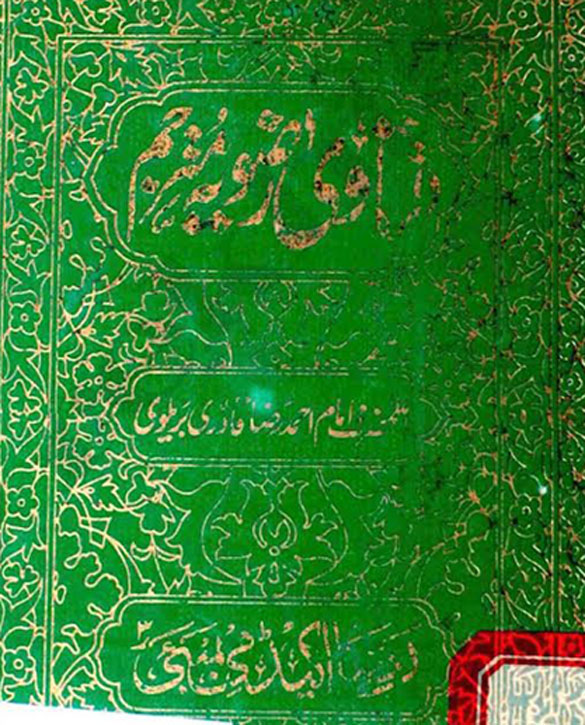 فتاوٰی رضویہ مترجم
اعلیٰحضرت امام احمد رضا قادری بریلوی
رضا اکیڈمی بمبئی ۳